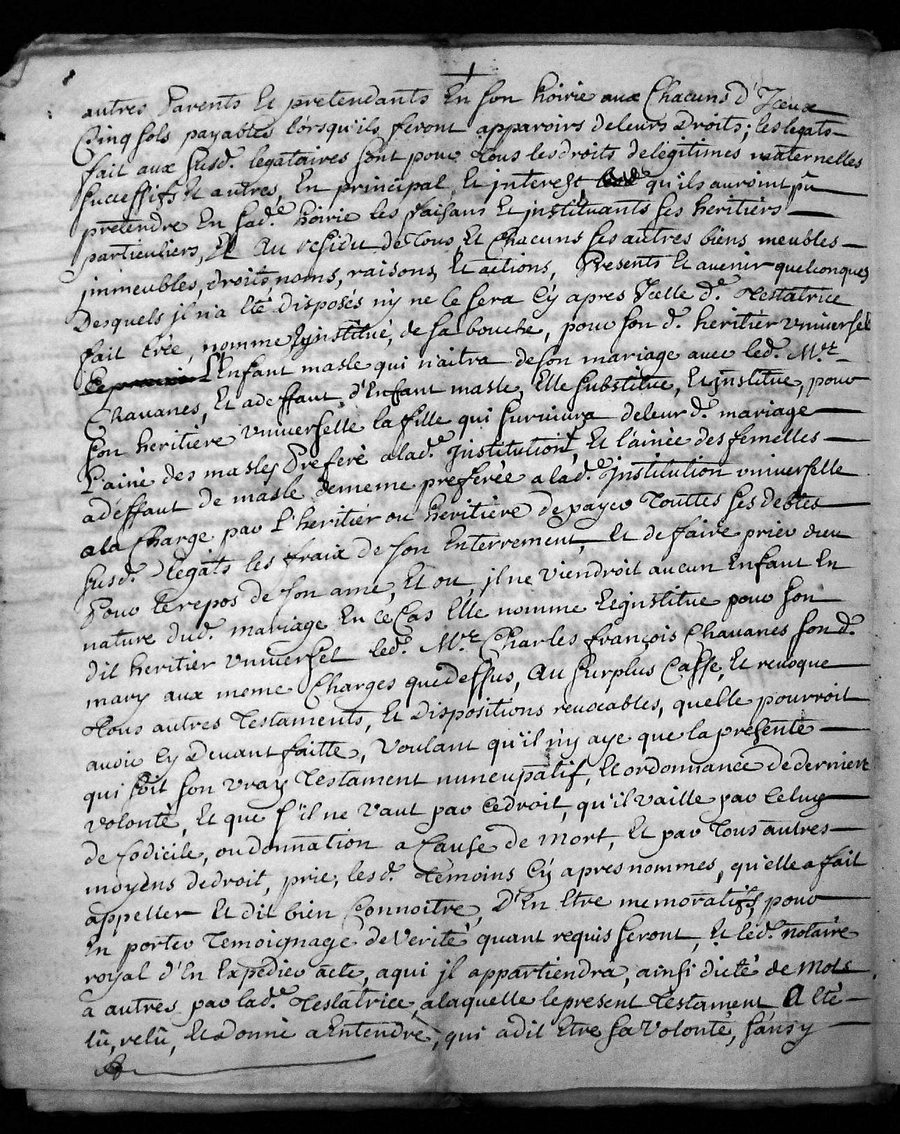 autres Parents Et pretendants En son hoirie aux Chacuns d'Iceux
Cinq sols payables lorsqu'ils feront apparoirs de leurs Droits; les legats
fait aux susd. legataires sont pour tous les droits de legitimes maternelles
successifs et autres, En principal, Et interest, qu'ils auroint pû
pretendre En sad.e hoirie les faisans Et instituants ses heritiers
particuliers, Et Au residu de tous, Et Chacuns ses autres biens meubles
immeubles, droits noms, raisons, Et actions, Presents Et avenir quelconques
Desquels il n'a Eté disposés n'y ne le sera Cy apres Icelle d.e Testatrice
fait Crée, nomme Et institue, de sa bouche, pour son d. heritier universel
L'Enfant masle qui naitra de son mariage avec led. M.re
Chavanes, Et adeffaut, d'Enfant masle, Elle substitue, Et institue, pour
son heritière Universelle la fille qui survivra de leur d. mariage
L'ainé des masles Preferé a lad.e institution, Et l'ainée des femelles
adeffaut de masle de meme preferée a lad.e institution universelle
ala Charge par l'heritier ou heritière de payer Touttes ses debtes
susd. legats les fraix de son Enterrement, Et de faire prier dieu
Pour le repos de son ame, Et ou, il ne Viendroit aucun Enfant En
nature dud. mariage En ce Cas Elle nomme Et institue pour son
dit heritier Universel led. M.re Charles françois Chavanes son d.
mary aux meme Charges que dessus, Au surplus Casse, Et revoque
tous autres Testaments, Et Dispositions revocables, quelle pourroit
avoir Cy Devant faitte, Voulant qu'il n'y aye que la presente
qui soit son vray Testament nuncupatif, Et ordonnance de derniere
volonté, Et que s'il ne Vaut par Ce droit, qu'il vaille par Celuy
de Codicile, ou donnation a Cause de mort, Et par Tous autres
moyens de droit, prie, les d. temoins Cy apres nommes, qu'elle a fait
appeller Et dit bien Connoitre, D'En Etre memoratifs, pour
En porter Temoignage de Verité quant requis seront, Et led. notaire
royal d'En Expedier acte, a qui il appartiendra, ainsi dicté de mots
à autres par lad.e Testatrice, a laquelle le present Testament A Eté
lû, relû, Et Donné a Entendre, qui a dit Etre sa Volonté, sans y